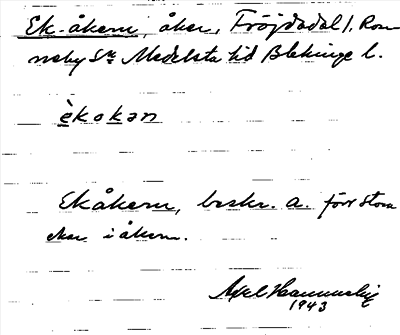 Ek-åkern, åker, Fröjdadal 1, Ron
neby Sn Medelsta hd Blekinge l.
èkokan
Ekåkern, beskr. a. förr stora
ekar i åkern.
Axel
1943